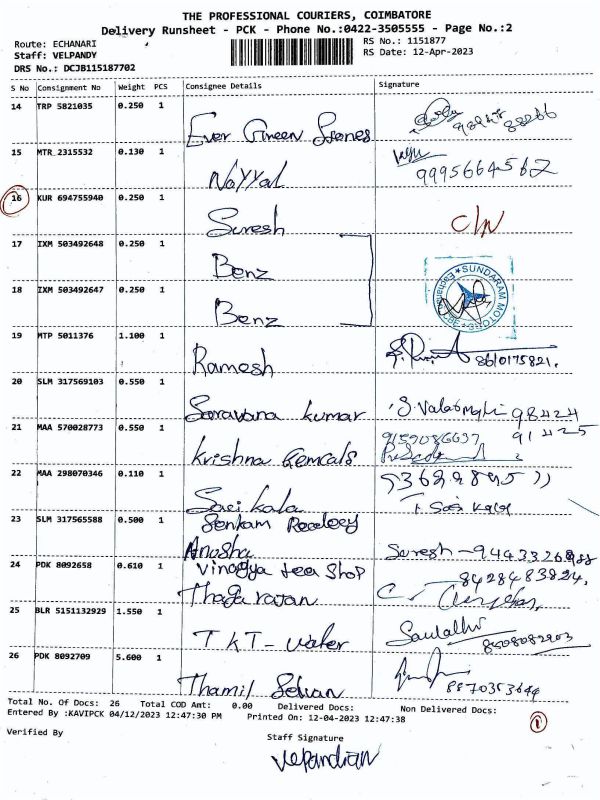 THE PROFESSIONAL COURIERS, COIMBATORE
Delivery Runsheet - PCK - Phone No.:0422-3505555 - Page No.:2
Route: ECHANARI
RS No.: 1151877
Staff: VELPANDY
RS Date: 12-Apr-2023
DRS No.: DCJB115187702
S No Consignment No Weight PCS Consignee Details Signature
14 TRP 5821035 0.250 1
Ever Green Stones
15 MTR 2315532 0.130 1
Nayyal 9995664562
16 KUR 694755940 0.250 1
Suresh C/N
17 IXM 503492648 0.250 1
Benz
SUNDARAM MOTORS
18 IXM 503492647 0.250 1
Benz
19 MTP 5011376 1.100 1
Ramesh 8610175821.
20 SLM 317569103 0.550 1
Saravana kumar 98424
21 MAA 570028773 0.550 1 91425
Krishna Gemcals
22 MAA 298070346 0.110 1
Sasi kala T. Sasi kala
23 SLM 317565588 0.500 1
Anusha Suresh - 9443326988
24 PDK 8092658 0.610 1
Vinagya tea shop 8428483824,
Thagarajan
25 BLR 5151132929 1.550 1
TKT - water 8508082903
26 PDK 8092709 5.600 1
Thamil Selvan 8870353644
Total No. Of Docs: 26 Total COD Amt: 0.00 Delivered Docs: Non Delivered Docs: 1
Entered By :KAVIPCK 04/12/2023 12:47:30 PM Printed On: 12-04-2023 12:47:38
Verified By
Staff Signature
Velpandian